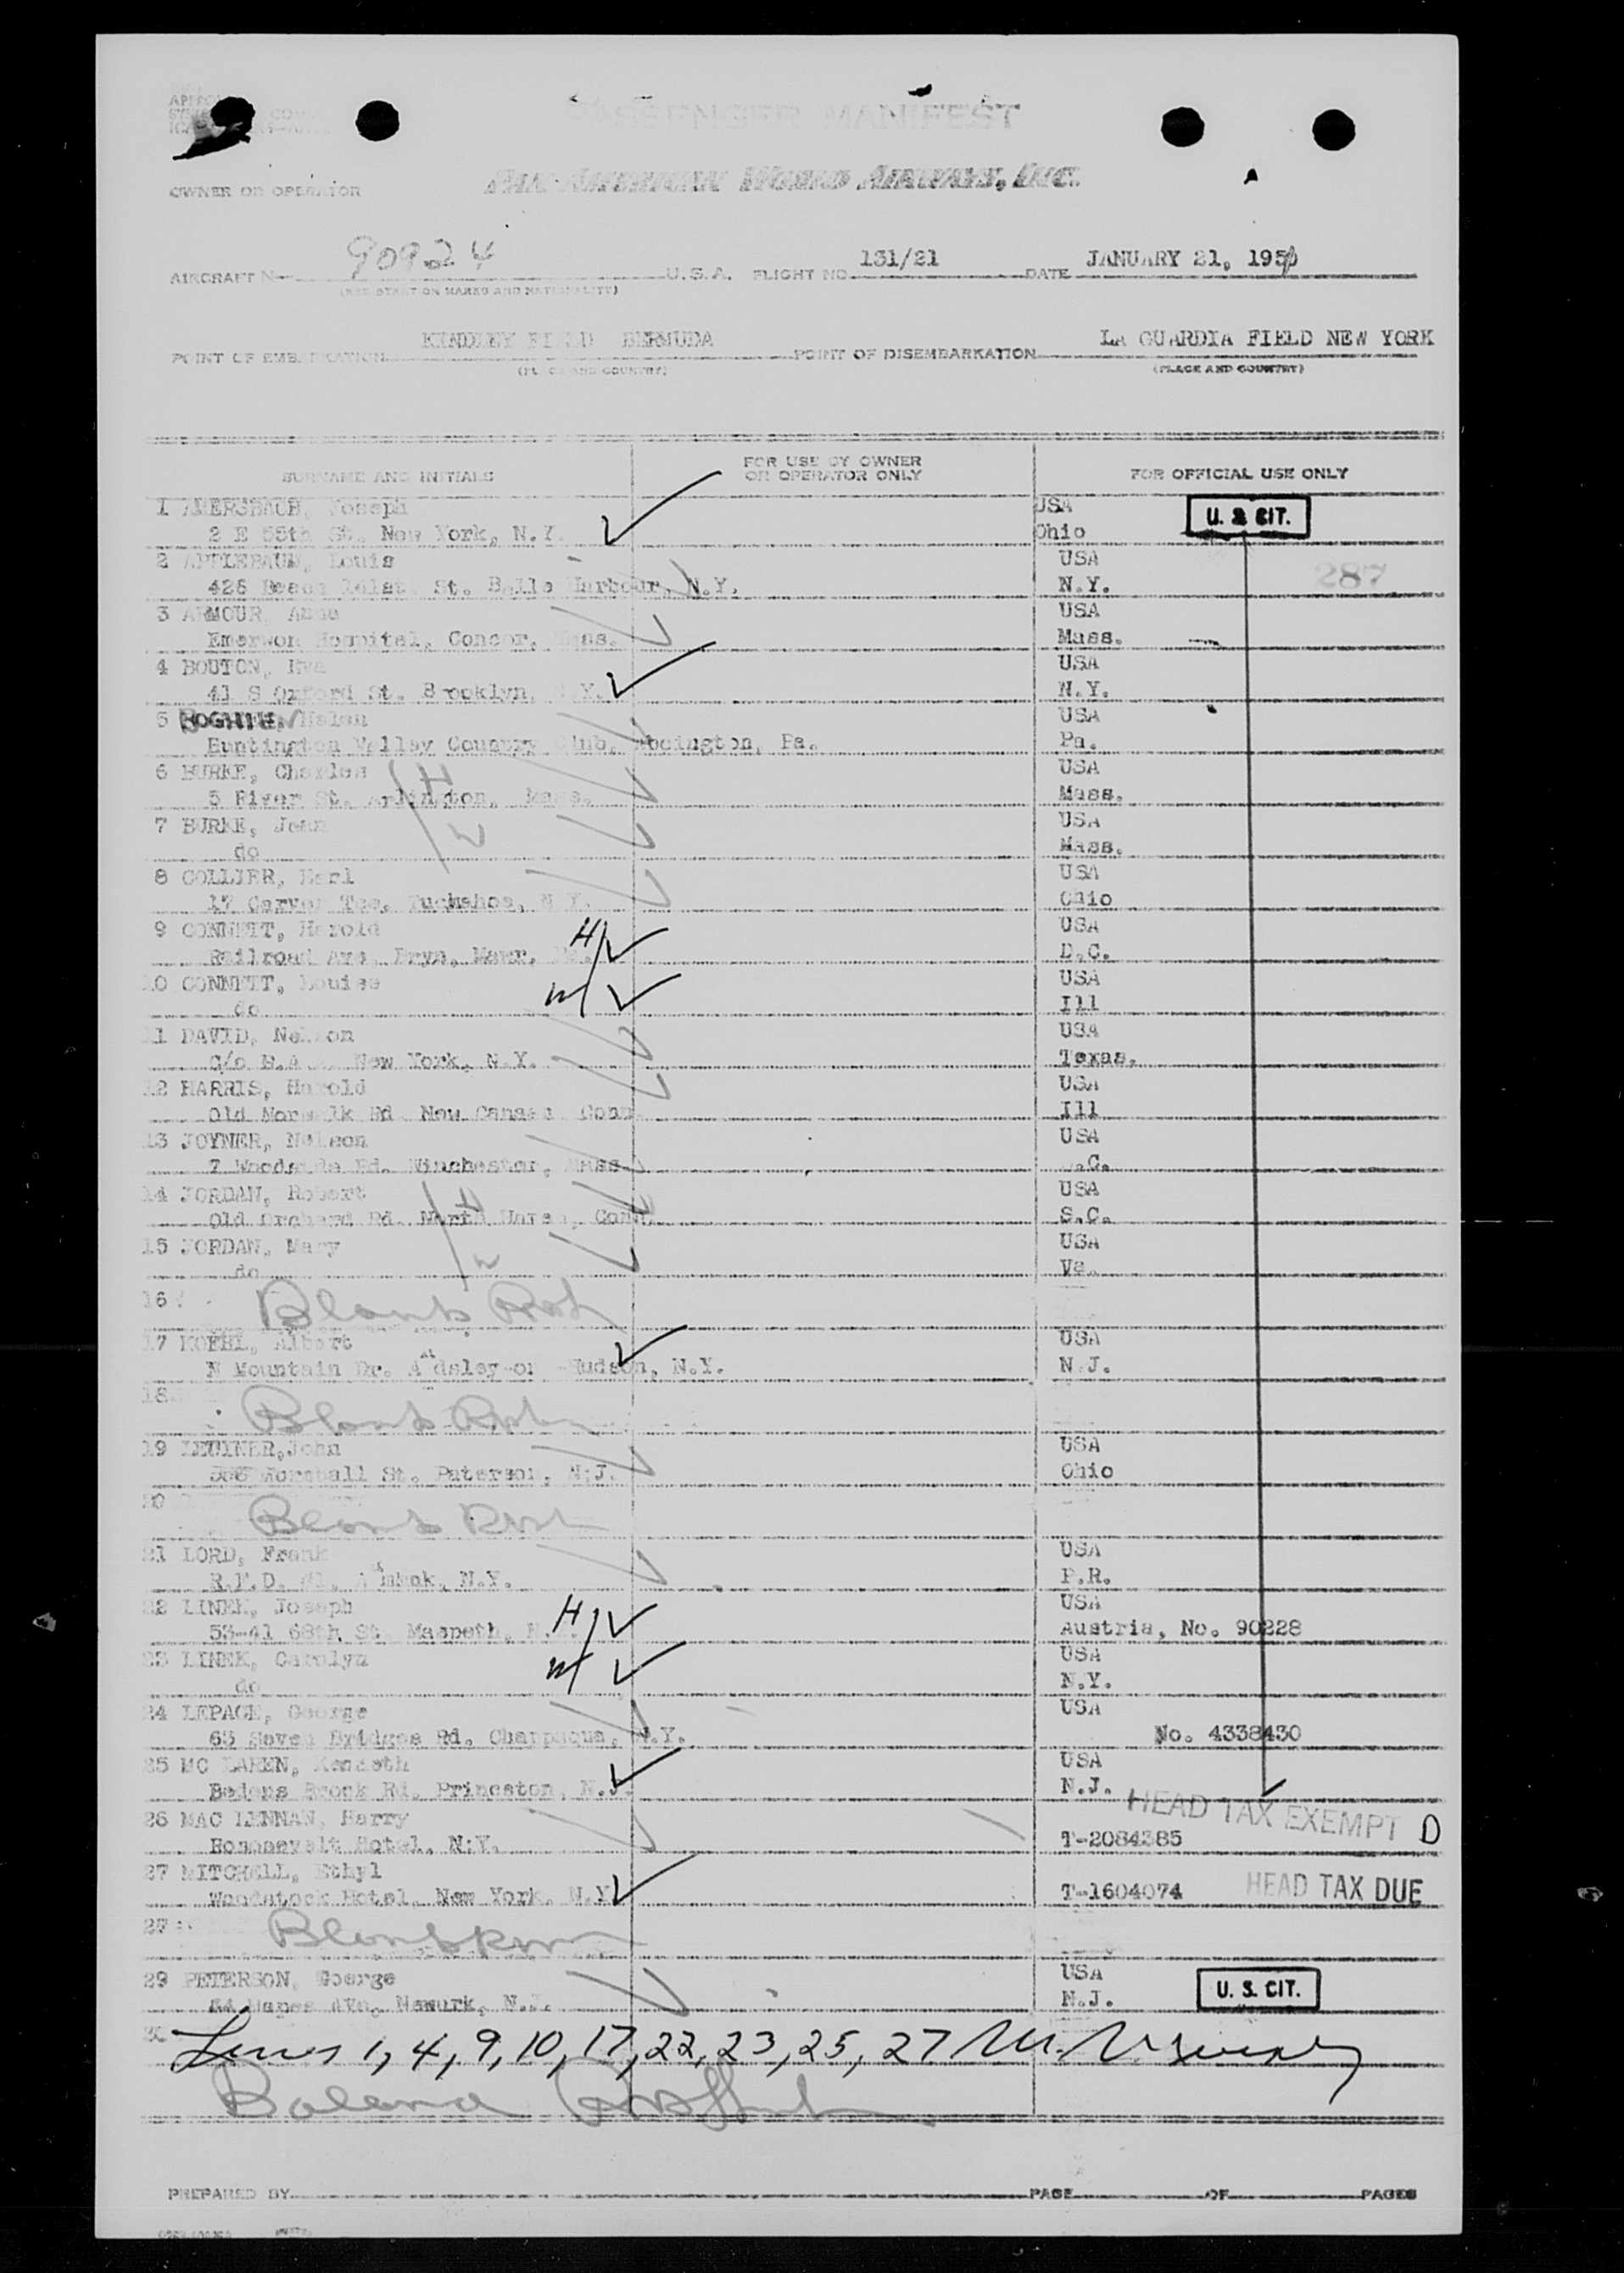 PASSENGER MANIFEST
OWNER OR OPERATOR PAN AMERICAN WORLD AIRWAYS, INC.
AIRCRAFT No 90924 U.S.A. FLIGHT NO 131/21 DATE JANUARY 21, 1950
(REGISTRATION MARKS AND NATIONALITY)
POINT OF EMBARKATION KINDLEY FIELD BERMUDA POINT OF DISEMBARKATION LA GUARDIA FIELD NEW YORK
(PLACE AND COUNTRY) (PLACE AND COUNTRY)
SURNAME AND INITIALS FOR USE BY OWNER OR OPERATOR ONLY FOR OFFICIAL USE ONLY
1 Joseph USA U. S CIT.
2 E 55th St. New York, N.Y. Ohio
2 APPLEBAUM, Louis USA
St. Belle Harbour, N.Y. N.Y. 287
3 ARMOUR, Anne USA
Emerwon Hospital, Concor, Mass. Mass.
4 BOUTON, USA
41 S Oxford St. Brooklyn, N.Y. N.Y.
5 Helen USA
Huntington Valley Country Club, Abbington, Pa. Pa.
6 BURKE, Charles H USA
5 River St. Arlington, Mass. Mass.
7 BURKE, Jean W USA
do Mass.
8 COLLIER, Earl USA
17 Carver Tuckahoe, N.Y. Ohio
9 CONNETT, Harold H USA
Railroad Ave Bryn, Mawr, D.C.
10 CONNETT, Louise W USA
do Ill
11 DAVID, Nelson USA
C/o New York, N.Y. Texas.
12 HARRIS, Harold USA
Old Norwalk Rd New Canaan Conn Ill
13 JOYNER, Nelson USA
7 Woodside Rd. Winchester, Mass .C.
14 JORDAN, Robert H USA
Old Orchard Rd. North Haven, Conn. S.C.
15 JORDAN, Mary W USA
do Va.
16 Blank
17 KOEHL, Albert USA
N Mountain Dr. Ardsley-on-Hudson, N.Y. N.J.
18 Blank
19 John USA
Marshall St. Paterson, N.J. Ohio
20 Blank
21 LORD, Frank USA
R.F.D. Armonk, N.Y. P.R.
22 LINEK, Joseph H USA
53-41 68th St Maspeth, Austria, No. 90228
23 LINEK, Carolyn W USA
do N.Y.
24 LEPAGE, George USA
65 Seven Bridges Rd. Chappaqua, N.Y. No. 4338430
25 MC LAREN, Kenneth USA
Bedens Brook Rd. Princeton, N.J. N.J.
26 MAC LENNAN, Harry HEAD TAX EXEMPT D
Roosevelt Hotel, N.Y. T-2084385
27 MITCHELL, Ethyl
Woodstock Hotel, New York, N.Y. T-1604074 HEAD TAX DUE
Blank
29 PETERSON, Goerge USA U. S. CIT.
Mapes Ave, Newark, N.J. N.J.
Lines 1, 4, 9, 10, 17, 22, 23, 25, 27
PREPARED BY PAGE OF PAGES